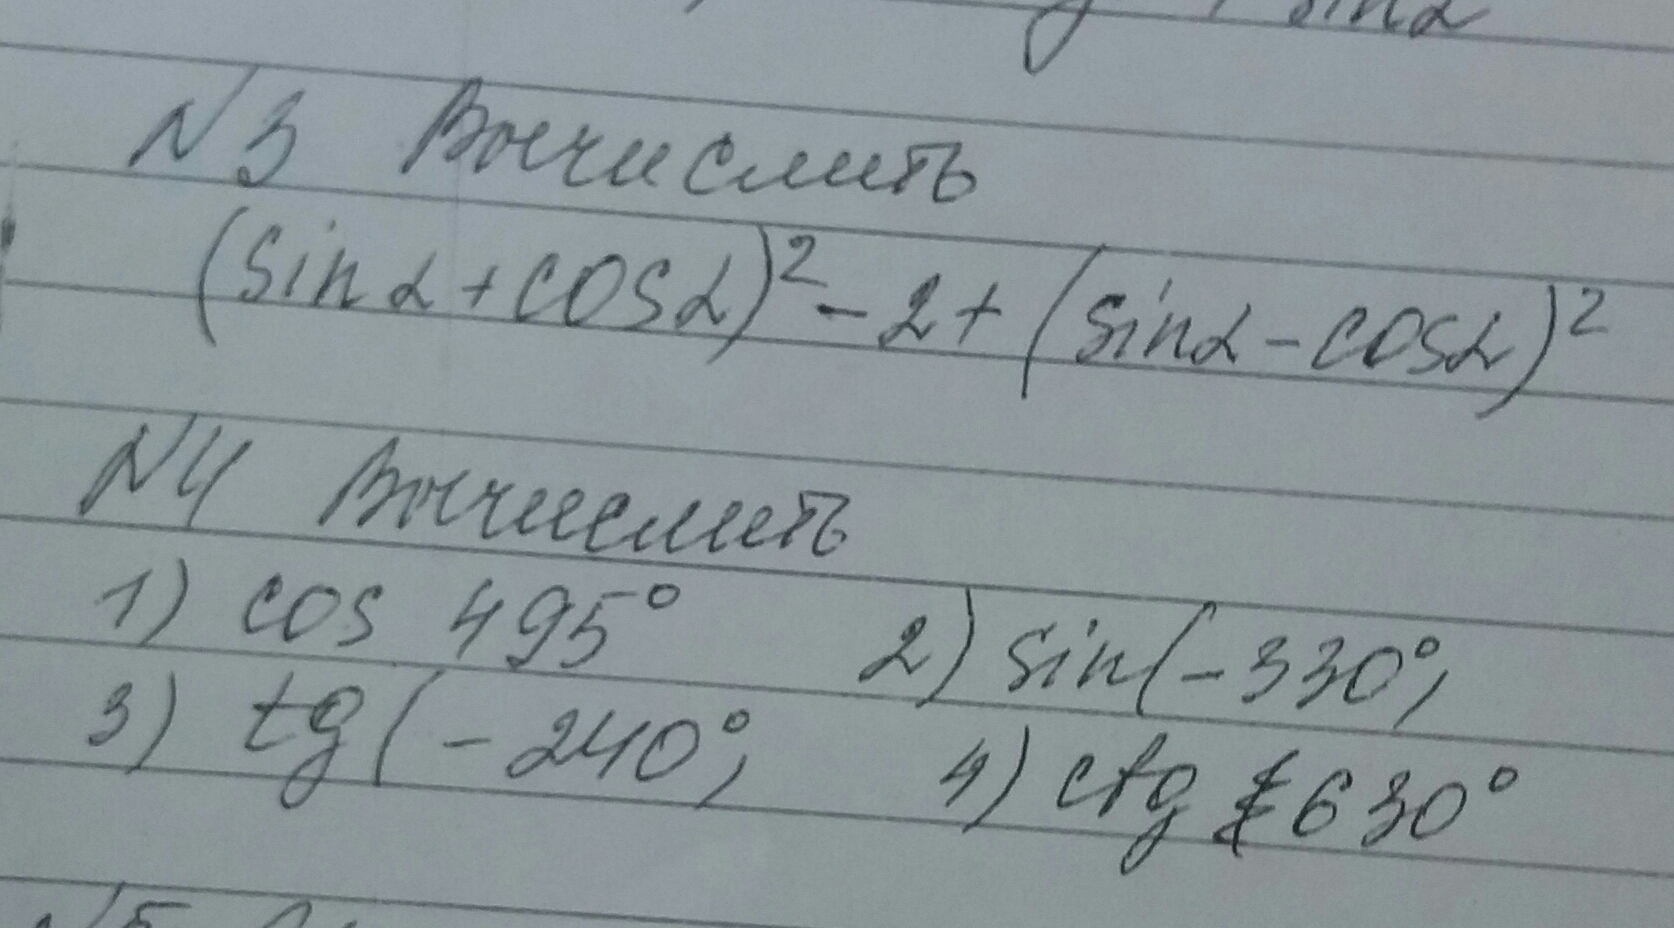 sinα
N3 Вычислить
(sinα+cosα)²-2+(sinα-cosα)²
N4 Вычислить
1) cos 495° 2) sin(-330°)
3) tg(-240°) 4) ctg 630°
N5